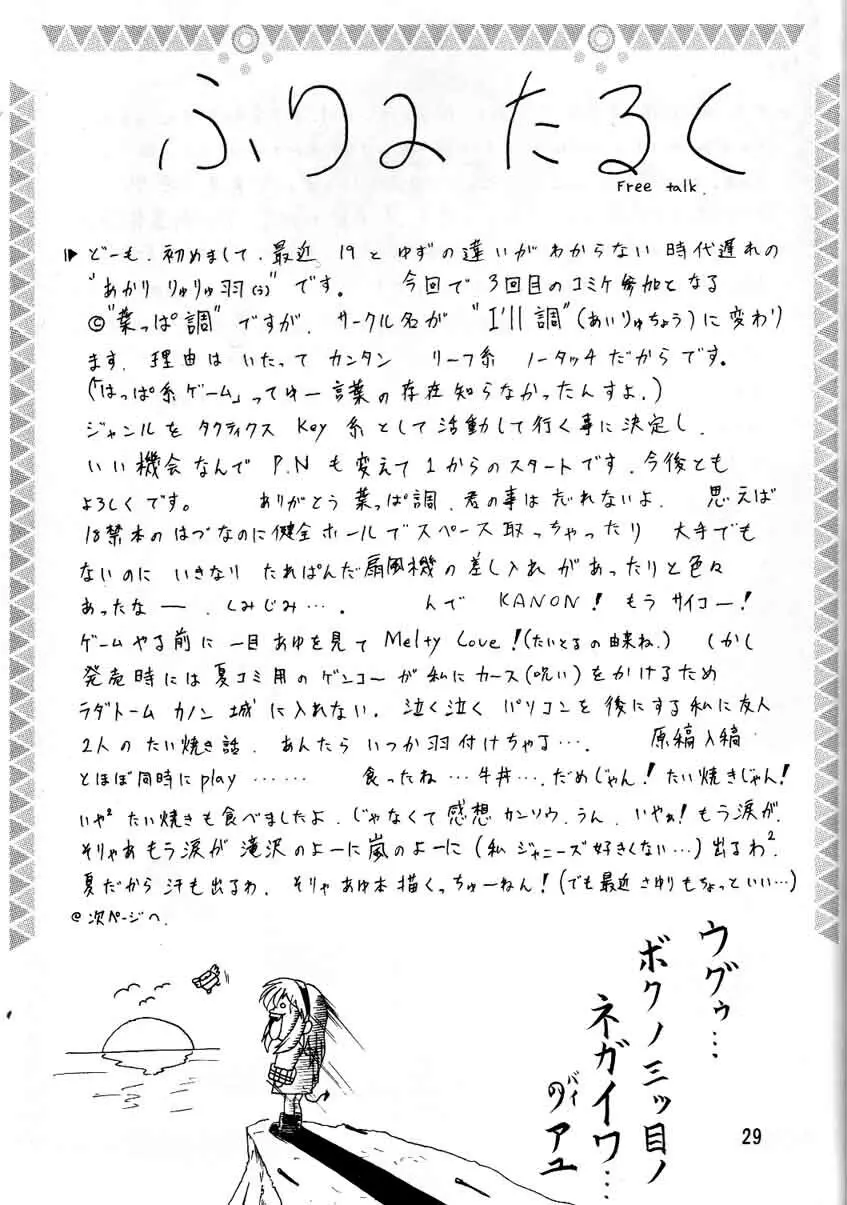 ふりーたるく
Free talk.
どーも、初めまして、最近 19 と ゆずの違いが わからない 時代遅れの
"あかり りゅりゅ羽(う)" です。 今回で 3回目のコミケ参加となる
©"葉っぱ調" ですが、サークル名が "I'll 調"(あいりゅちょう)に変わり
ます、理由は いたって カンタン リーフ系 ノータッチだからです。
(「はっぱ系ゲーム」ってゆー言葉の存在知らなかったんすよ、)
ジャンルを タクティクス Key 系として活動して行く事に決定し、
いい機会なんで P.N も変えて 1からのスタートです、今後とも
よろしくです。 ありがとう 葉っぱ調、君の事は忘れないよ、 思えば
18禁本のはづなのに健全ホールでスペース取っちゃったり 大手でも
ないのに いきなり たれぱんだ扇風機の差し入れがあったりと色々
あったなー、しみじみ…。 んで KANON! もうサイコー!
ゲームやる前に 一目あゆを見て Melty Love!(たいとるの由来ね、) しかし
発売時には夏コミ用のゲンコーが私にカース(呪い)をかけるため
ラダトーム カノン 城に入れない、泣く泣く パソコンを後にする私に友人
2人のたい焼き話、あんたら いつか羽付けちゃる…、 原稿入稿
とほぼ同時にplay …… 食ったね…牛丼…、だめじゃん!たい焼きじゃん!
いや² たい焼きも食べましたよ、じゃなくて感想カンソウ、うん、いやぁ!もう涙が、
そりゃあもう涙が滝沢のよーに嵐のよーに(私 ジャニーズ好きくない…)出るわ²、
夏だから汗も出るわ、そりゃ あゆ本描くっちゅーねん!(でも最近 さゆりもちょっといい…)
@ 次ページへ、
ウグゥ…
ボクノ三ッ目ノ
ネガイワ…
のバイツアユ
29